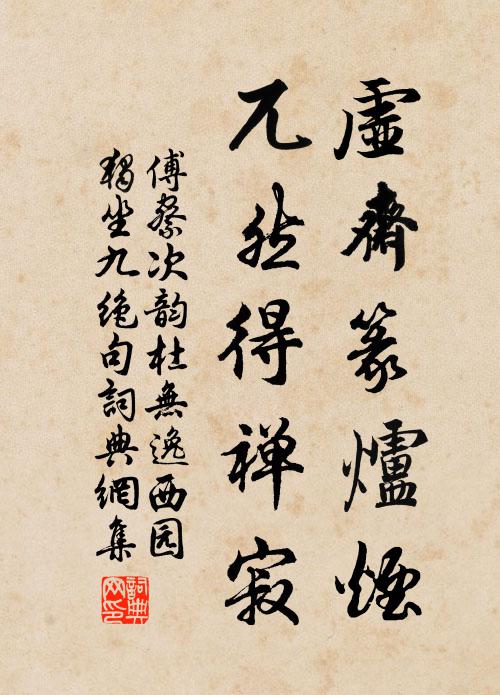 虛齋篆爐煙
兀然得禅寂
傅察次韵杜無逸西园
獨坐九绝句詞典網集
詞典网印